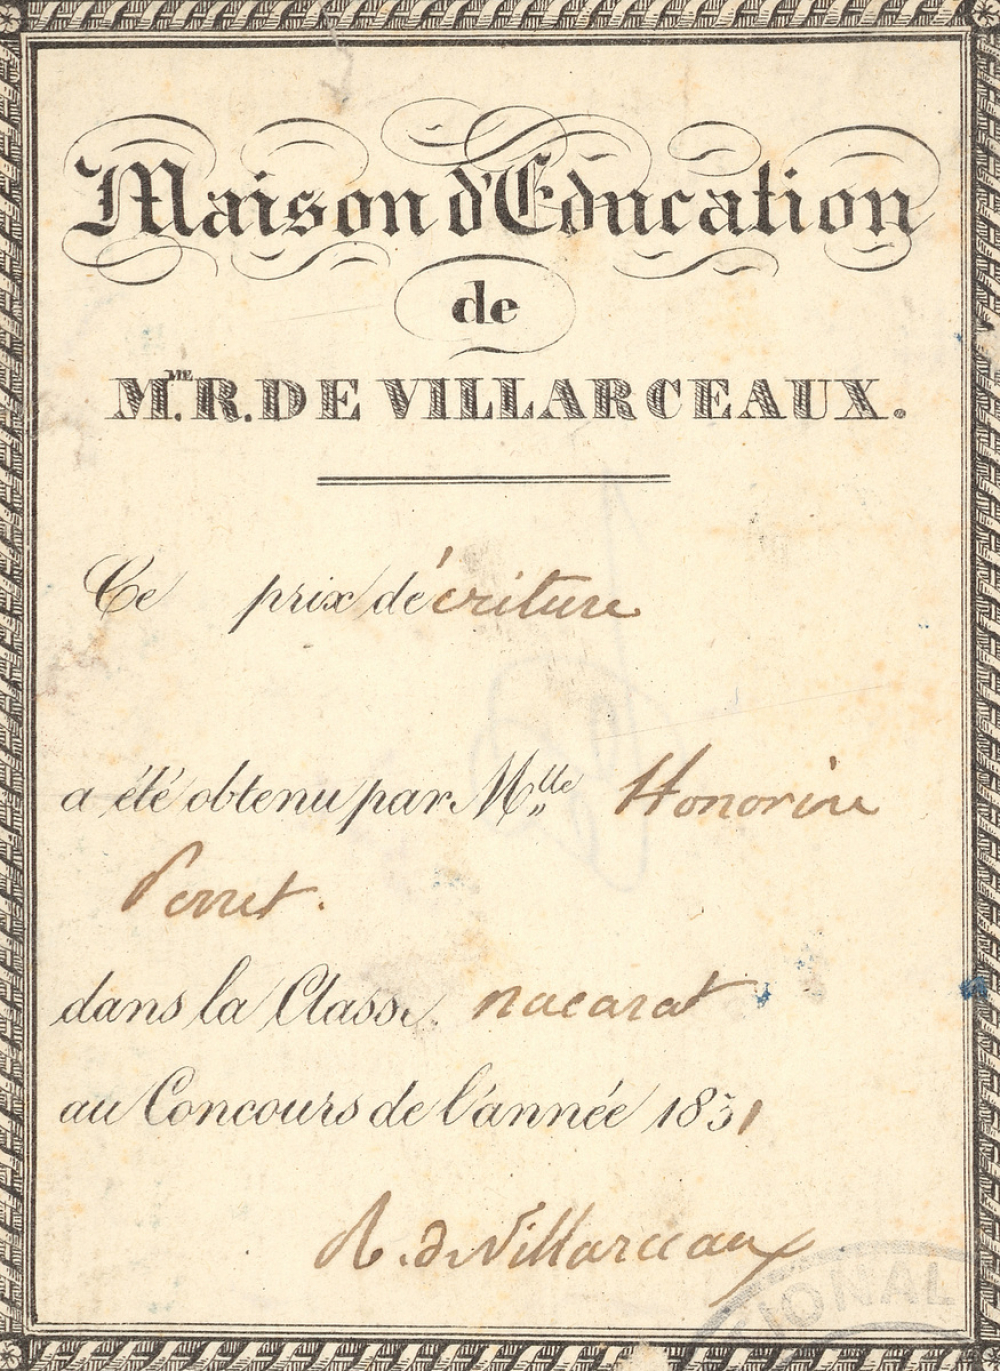 Maison d'Education
de
M.ME R. DE VILLARCEAUX.
Ce prix d'écriture
a été obtenu par Mlle Honorine
Perret.
dans la Classe nacarat
au Concours de l'année 1831
R. de Villarceaux
IONAL